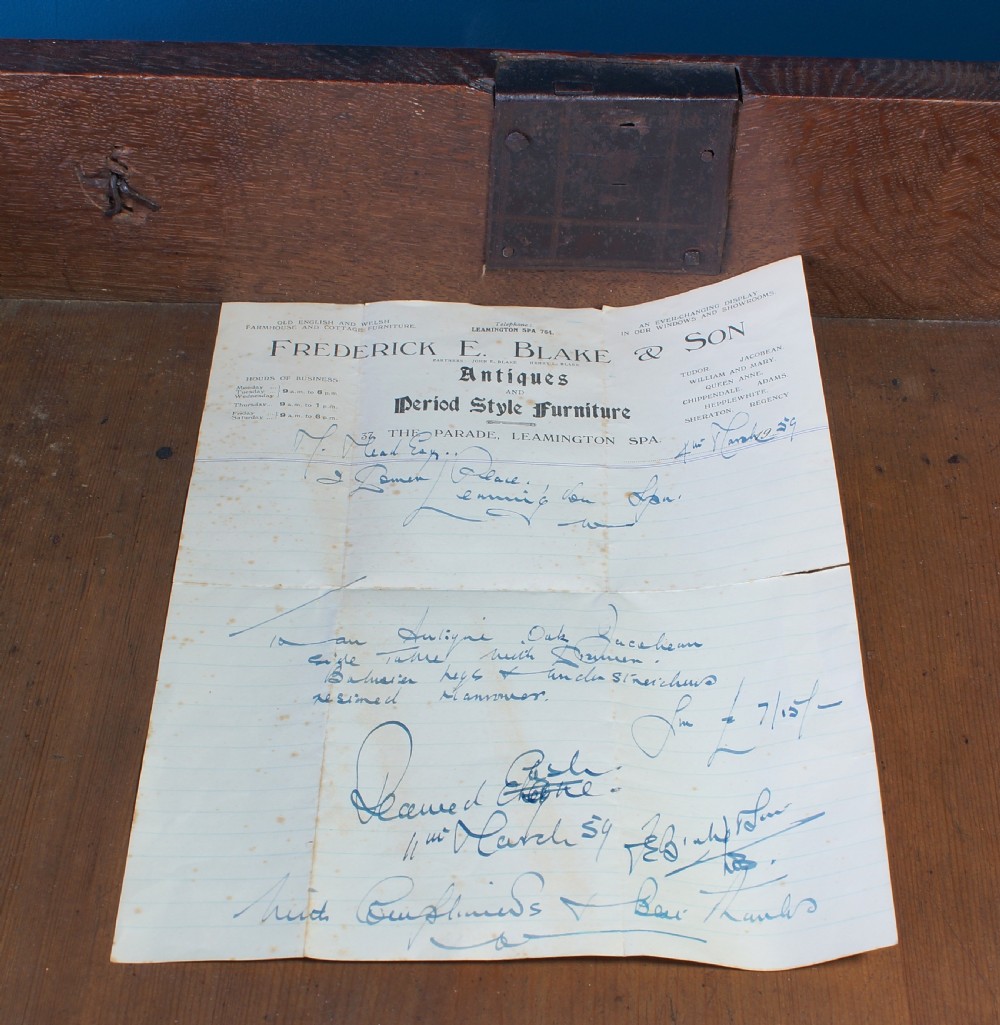 OLD ENGLISH AND WELSH
FARMHOUSE AND COTTAGE FURNITURE.
Telephone:
LEAMINGTON SPA 764.
AN EVER-CHANGING DISPLAY
IN OUR WINDOWS AND SHOWROOMS.
FREDERICK E. BLAKE & SON
PARTNERS
Antiques
AND
Period Style Furniture
HOURS OF BUSINESS.
Monday
Tuesday
Wednesday
9 a.m. to 6 p.m.
Thursday
9 a.m. to 1 p.m.
Friday
Saturday
9 a.m. to 6 p.m.
TUDOR JACOBEAN.
WILLIAM AND MARY.
QUEEN ANNE.
CHIPPENDALE ADAMS
HEPPLEWHITE.
SHERATON REGENCY
37 THE PARADE, LEAMINGTON SPA.
4th March 59
Mead Esq.
2 Place.
Leamington Spa.
To an Antique Oak Jacobean
side Table with Drawer.
legs & understretchers
Sum £ 7/15/-
Received Cash.
March 59
Blake & Son
With Compliments & Best Thanks